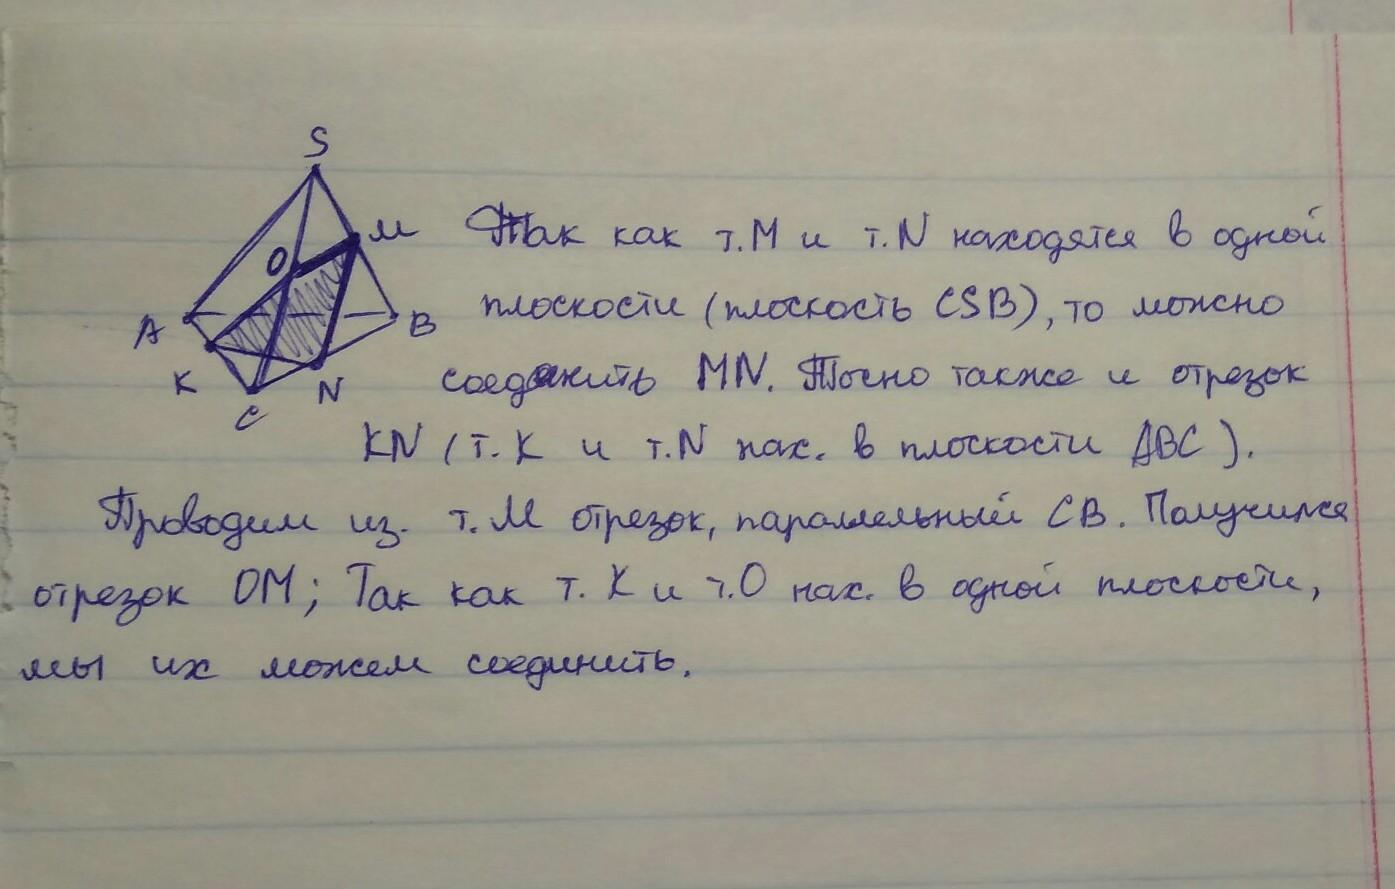 S
M
O
A
B
K
N
C
Так как т.M и т.N находятся в одной
плоскости (плоскость CSB), то можно
соединить MN. Точно также и отрезок
KN (т.K и т.N нах. в плоскости ABC).
Проводим из. т.M отрезок, параллельный CB. Получился
отрезок OM; Так как т.K и т.O нах. в одной плоскости,
мы их можем соединить.